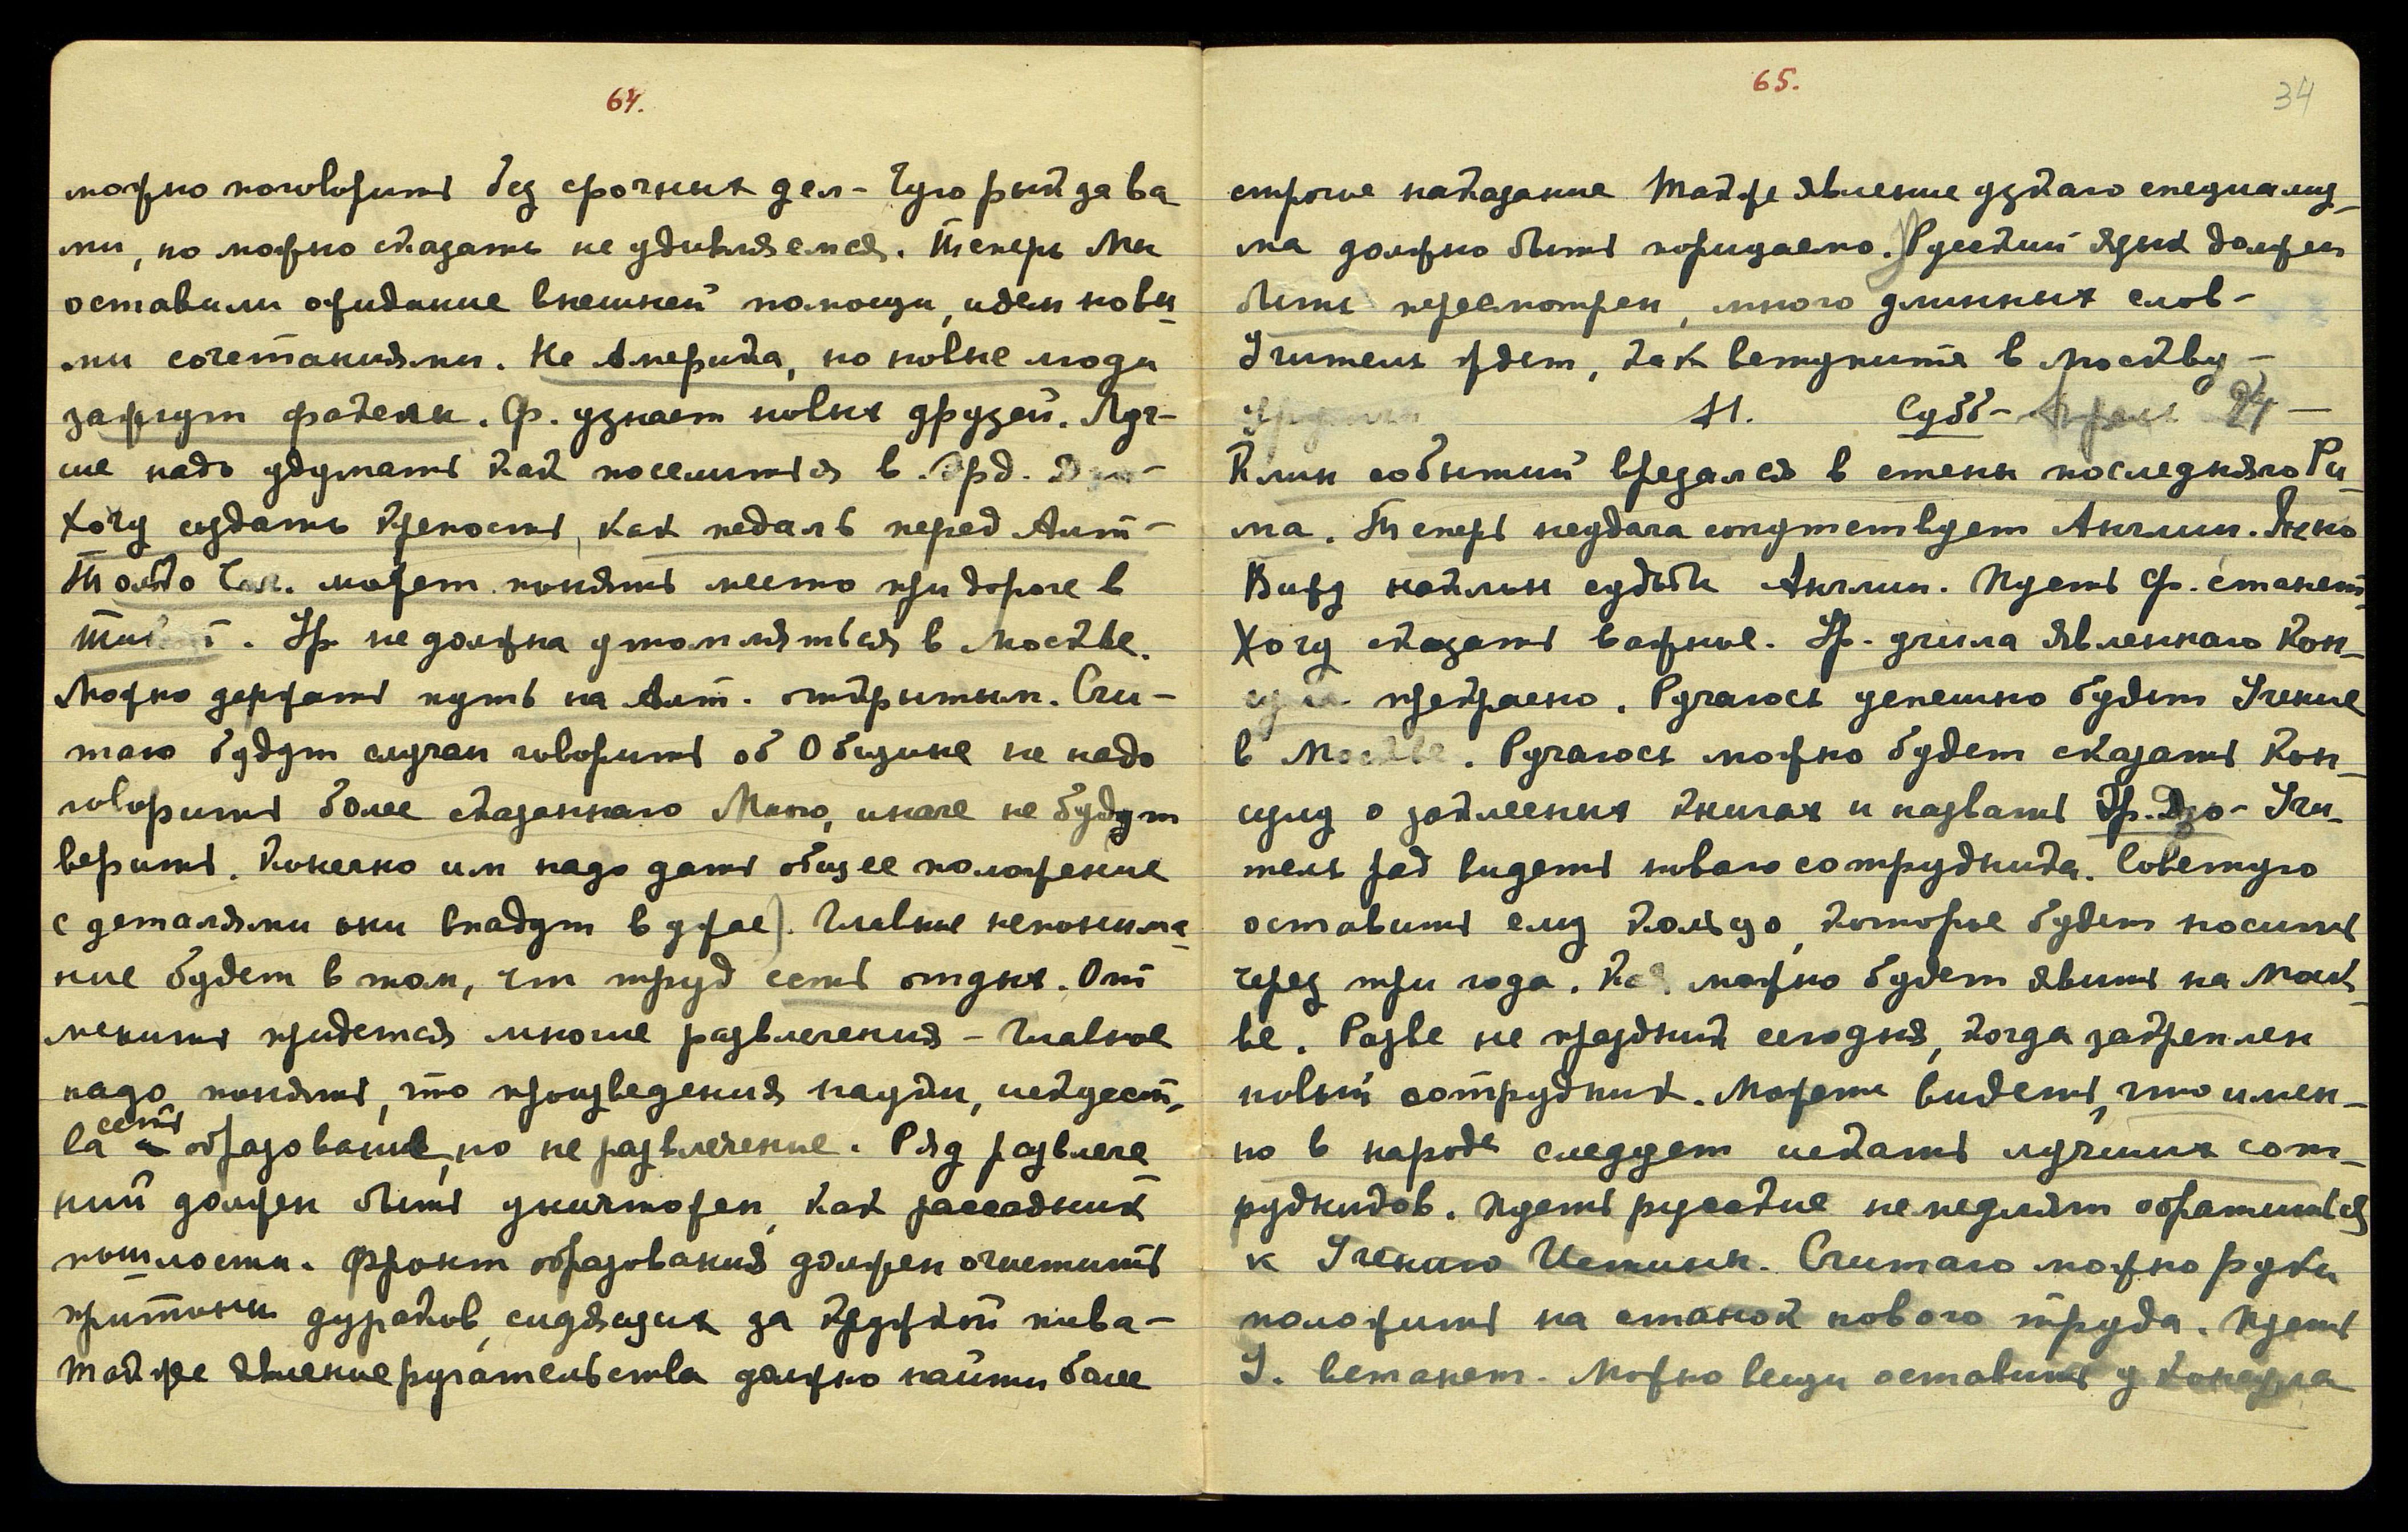 64.
можно поговорить без срочных дел - Чудо рыйда ва
ми, но можно сказать не удивляемся. Теперь Мы
оставили ожидание внешней помощи, идем новы
ми сочетаниями. Не Америка, но новые люди
зажгут факелы. Ф. узнает новых друзей. Луч-
ше надо удумать как поселиться в
Хочу создать крепость, как педаль перед Алт -
Только может понять место при дороге в
Ур не должна утомляться в Москве.
Можно держать путь на Алт. открытым. Счи-
таю будут случаи говорить об Общине не надо
говорить более сказаннаго Мною, иначе не будут
верить. Конечно им надо дать общее положение
с деталями они впадут в ужас). Главное непонима-
ние будет в том, что труд есть отдых. От
менить придется многие развлечения - Главное
надо понять, что произведения науки, искусст-
ва есть образование, но не развлечение. Ряд развлече
ний должен быть уничтожен, как рассадник
пошлости. Фронт образования должен очистить
притоны дураков, сидящих за кружкой пива -
Также явление ругательства должно найти более
65.
34
строгое наказание Также явление узкаго специализ-
ма должно быть порицаемо. Русский язык должен
быть пересмотрен, много длинных слов -
Учитель ждет, как вступите в Москву -
11. Субб - 24 -
Клин событий врезался в стены последняго Ри-
ма. Теперь неудача сопутствует Англии. Ясно
Вижу наклон судьбы Англии. Пусть Ф. станет
Хочу сказать важное. Ур. учила явленнаго Кон-
сула прекрасно. Ручаюсь успешно будет Учение
в Москве. Ручаюсь можно будет сказать Кон-
сулу о заклеенных книгах и назвать Ур. Дзо - Учи-
тель рад видеть новаго сотрудника. Советую
оставить ему кольцо, которое будет носить
через три года. можно будет явить на Моск-
ве. Разве не праздник сегодня, когда закреплен
новый сотрудник. Можете видеть, что имен-
но в народе следует искать лучших сот-
рудников. Пусть русские не медлят обратиться
к Учению Истины. Считаю можно руки
положить на станок нового труда. Пусть
У. встанет. Можно вещи оставить у Консула